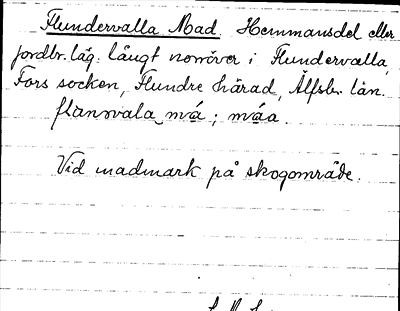 Flundervalla Mad. Hemmansdel eller
jordbr.läg. långt norröver i Flundervalla,
Fors socken, Flundre härad, Älfsb. län.
flannvala má; máa.
Vid madmark på skogområde.